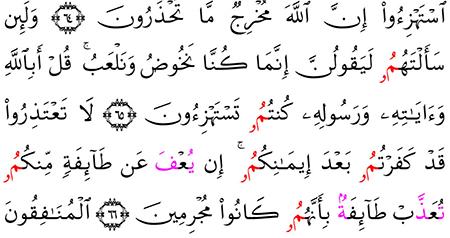 ٱسۡتَهۡزِءُوٓاْ إِنَّ ٱللَّهَ مُخۡرِجٞ مَّا تَحۡذَرُونَ ٦٤ وَلَئِن
سَأَلۡتَهُمُۥ لَيَقُولُنَّ إِنَّمَا كُنَّا نَخُوضُ وَنَلۡعَبُۚ قُلۡ أَبِٱللَّهِ
وَءَايَٰتِهِۦ وَرَسُولِهِۦ كُنتُمُۥ تَسۡتَهۡزِءُونَ ٦٥ لَا تَعۡتَذِرُواْ
قَدۡ كَفَرۡتُمُۥ بَعۡدَ إِيمَٰنِكُمُۥۚ إِن يُعۡفَ عَن طَآئِفَةٖ مِّنكُمُۥ
تُعَذَّبۡ طَآئِفَةُۢ بِأَنَّهُمُۥ كَانُواْ مُجۡرِمِينَ ٦٦ ٱلۡمُنَٰفِقُونَ